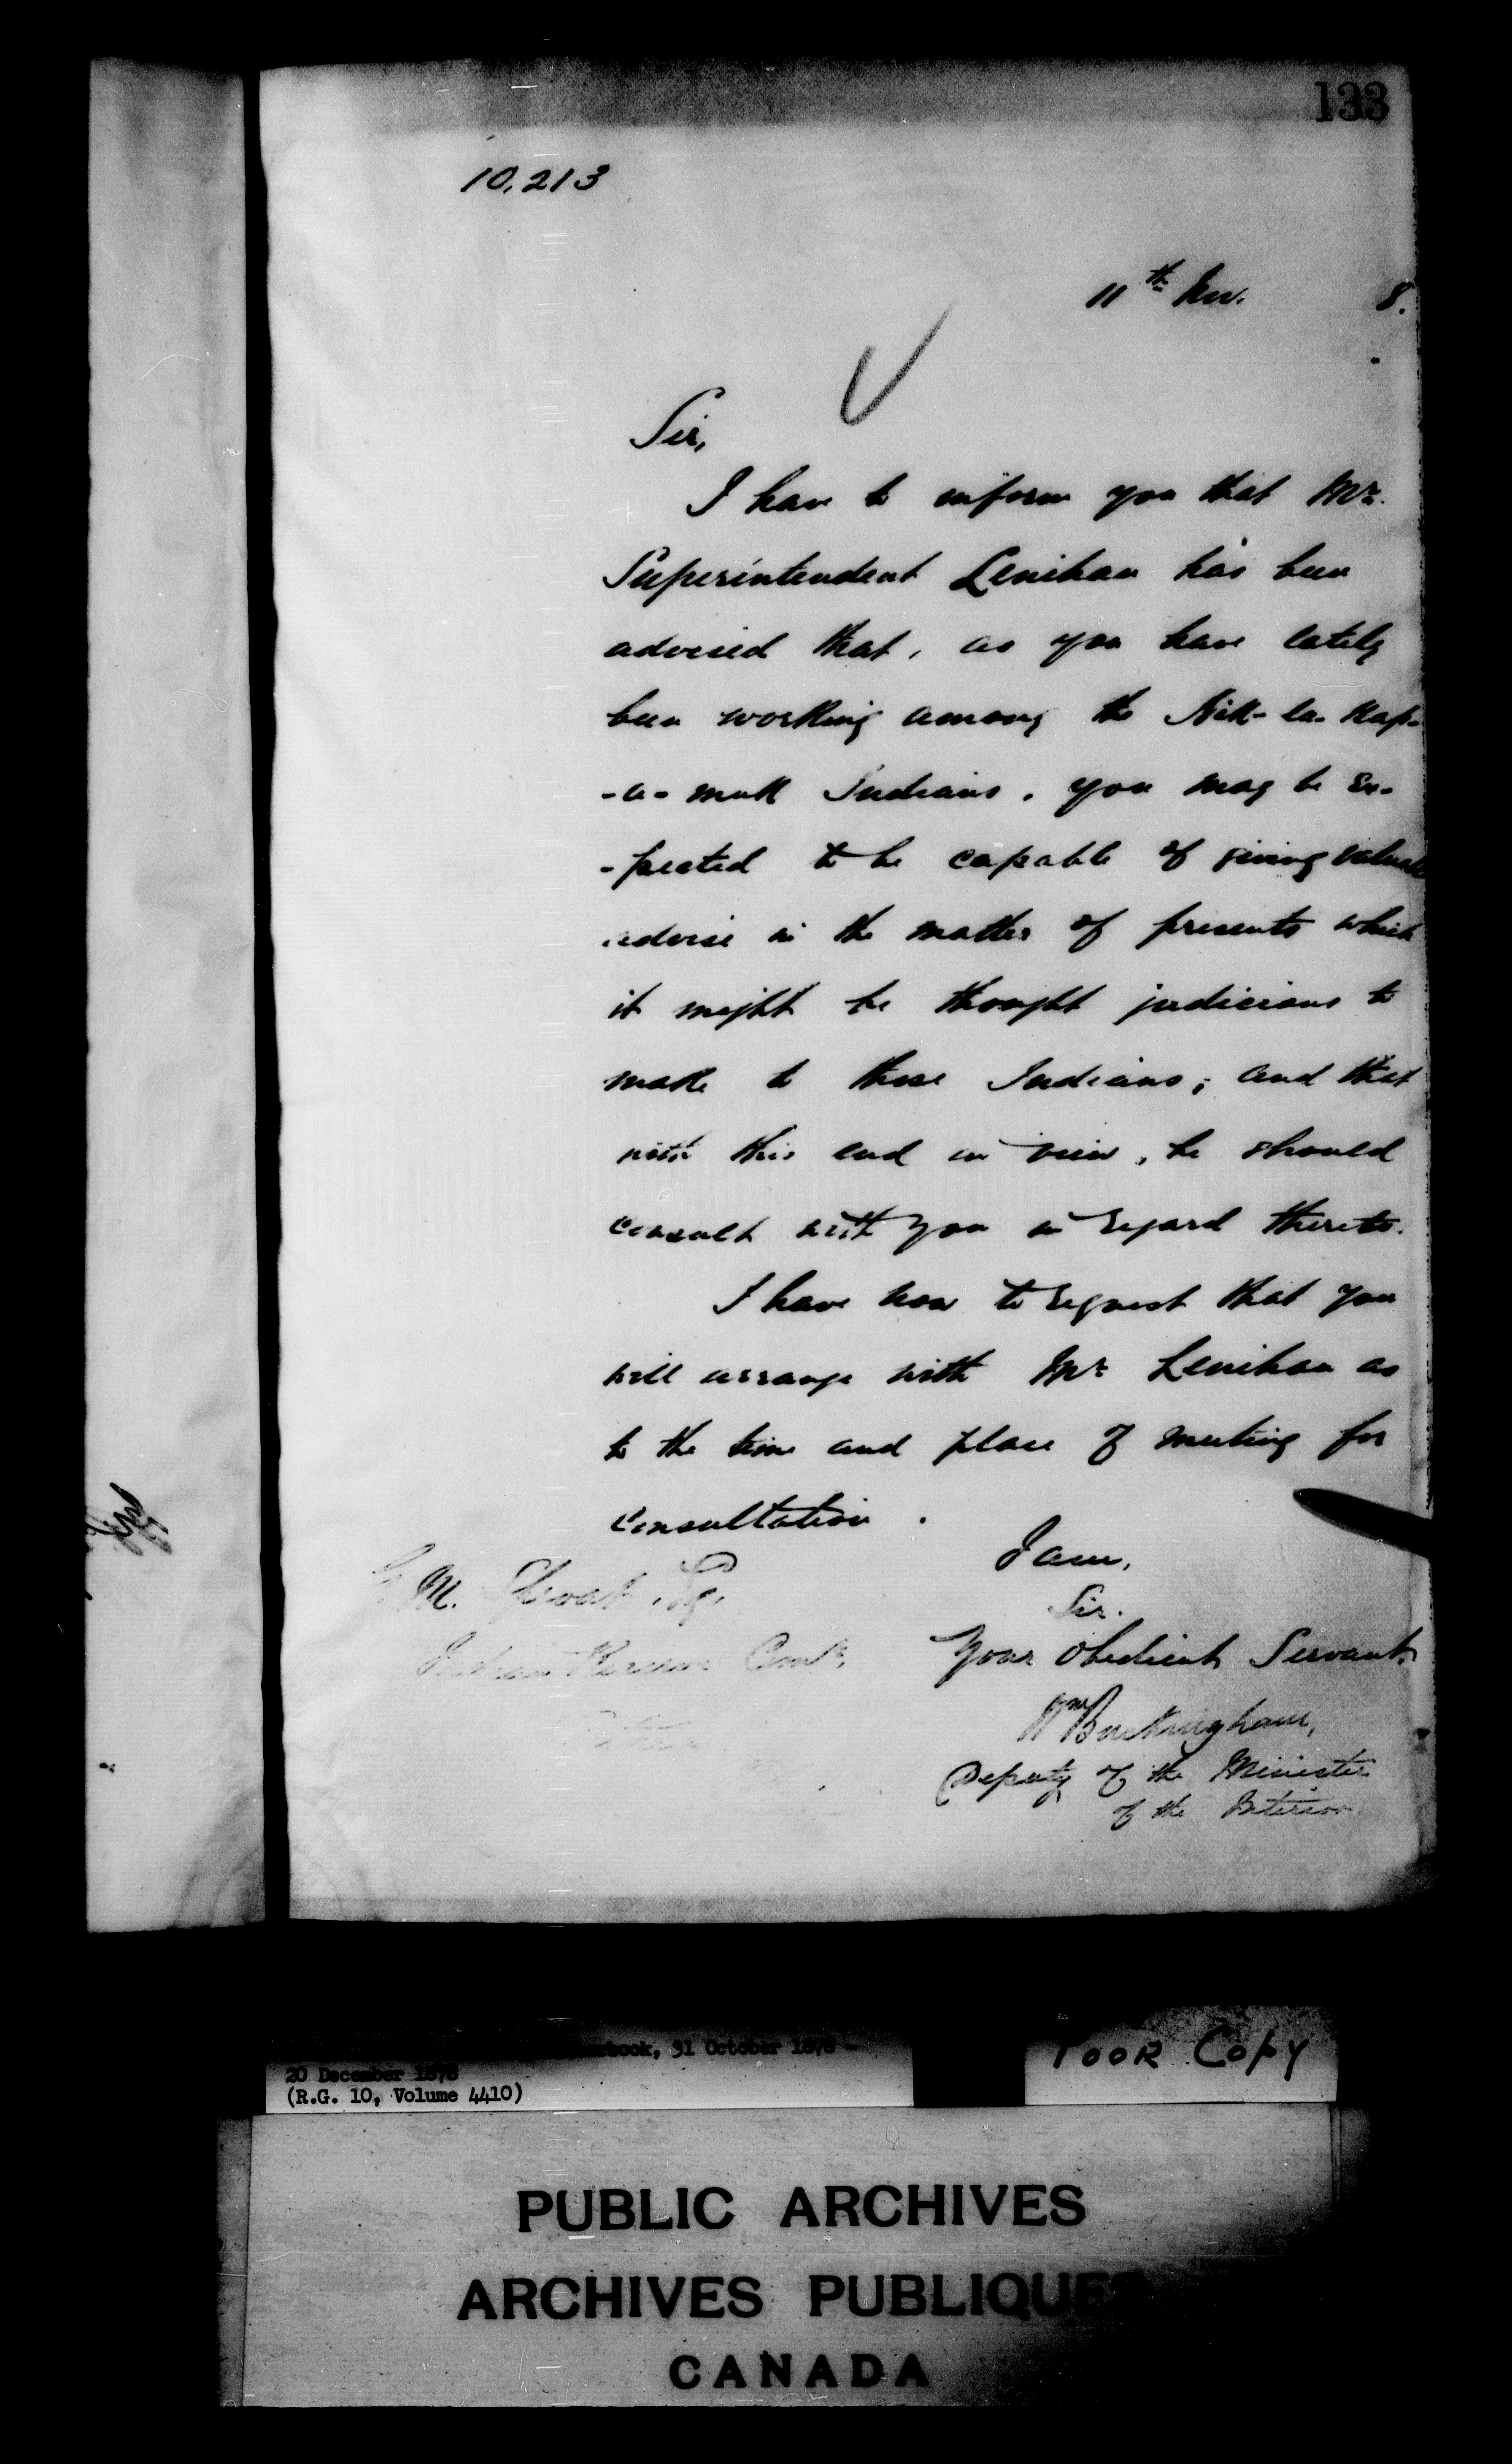 133
10,213
11th Nov. 8.
Sir,
I have to inform you that Mr.
Superintendent Lenihan has been
advised that, as you have lately
been working among the Nik-la-Kap-
-a-muk Indians, you may be ex-
-pected to be capable of giving valuable
advice in the matter of presents which
it might be thought judicious to
make to these Indians; and that
with this end in view, he should
consult with you in regard thereto.
I have now to request that you
will arrange with Mr Lenihan as
to the time and place of meeting for
consultation.
I am,
Sir.
Your Obedient Servant,
Wm Buckingham,
Deputy of the Minister
of the Interior
G. M. Sproat, Esq,
Indian Reserve Comr,
book, 31 October 1878 -
20 December 1878
(R.G. 10, Volume 4410)
Poor Copy
PUBLIC ARCHIVES
ARCHIVES PUBLIQUES
CANADA